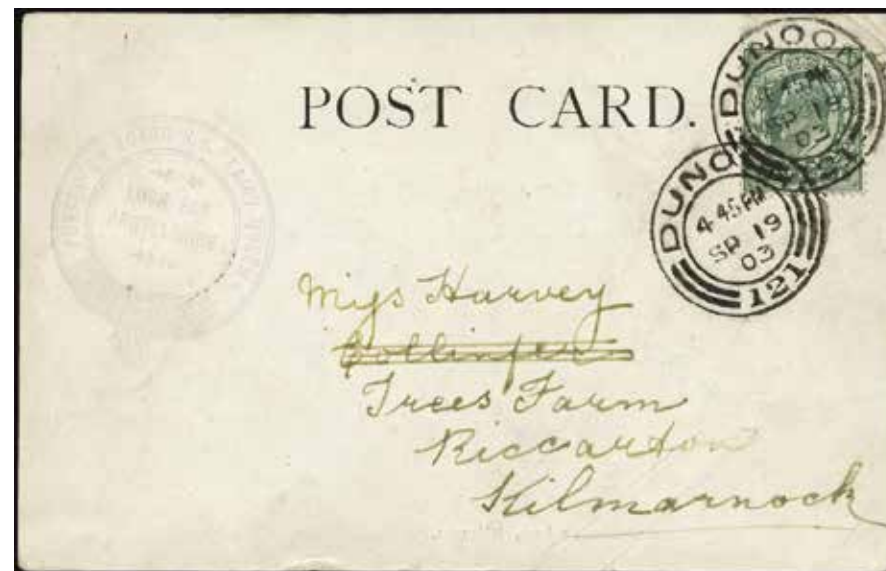 POST CARD.
DUNOO
4 45 PM
SP 19
03
121
DUNO
4 45 PM
SP 19
03
121
Miss Harvey
Trees Farm
Riccarton
Kilmarnock